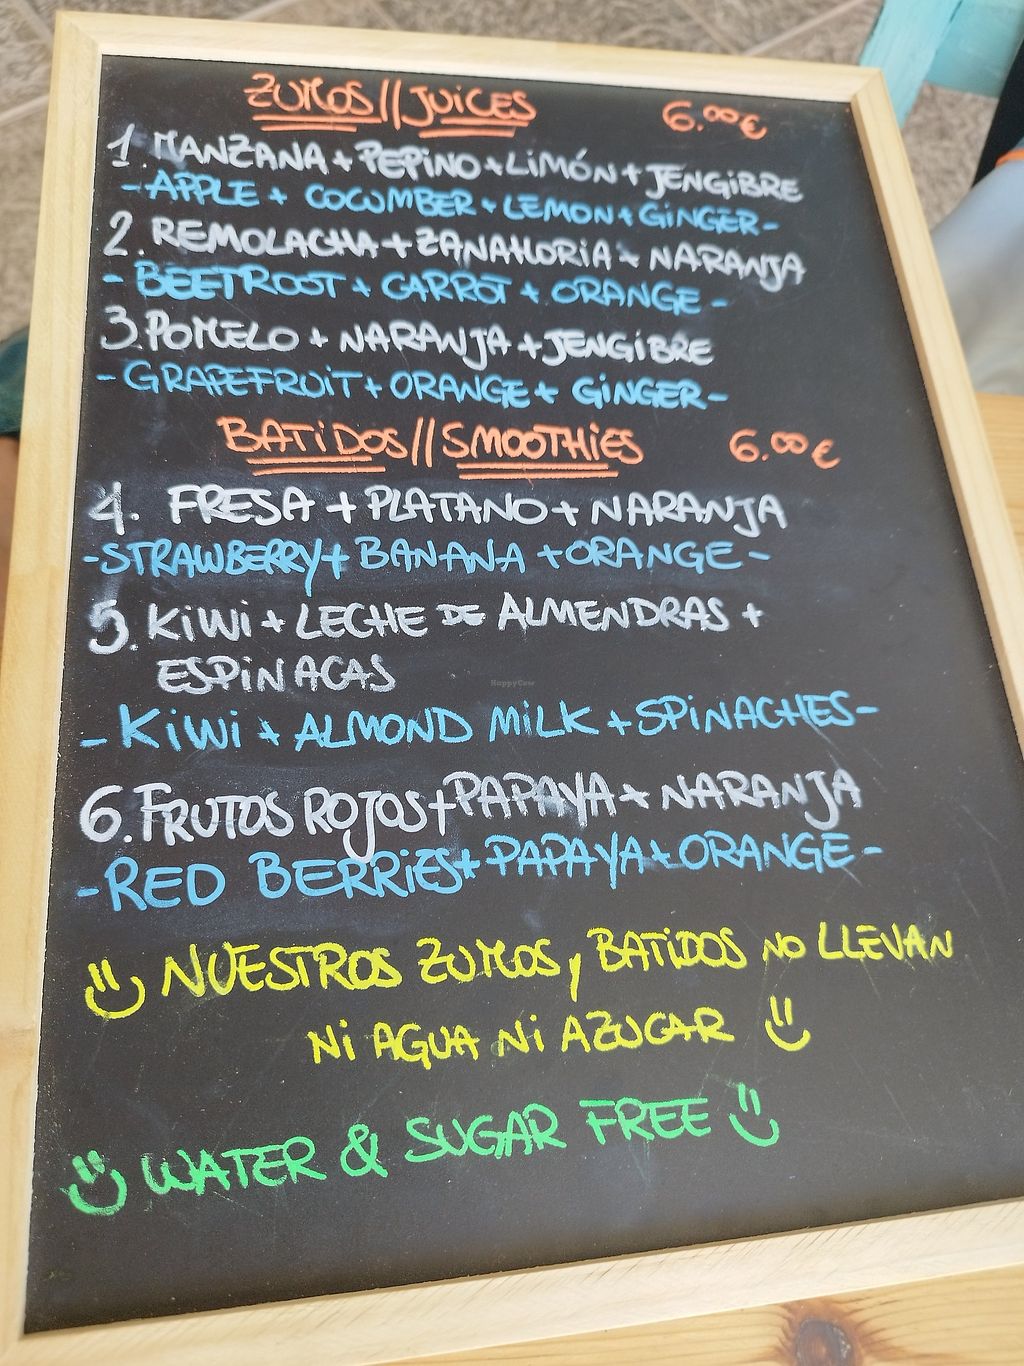 ZUMOS//JUICES 6.00€
1. MANZANA + PEPINO + LIMÓN + JENGIBRE
- APPLE + COCUMBER + LEMON + GINGER -
2. REMOLACHA + ZANAHORIA + NARANJA
- BEETROOT + CARROT + ORANGE -
3. POMELO + NARANJA + JENGIBRE
- GRAPEFRUIT + ORANGE + GINGER -
BATIDOS//SMOOTHIES 6.00€
4. FRESA + PLATANO + NARANJA
- STRAWBERRY + BANANA + ORANGE -
5. KIWI + LECHE DE ALMENDRAS +
ESPINACAS
- KIWI + ALMOND MILK + SPINACHES -
6. FRUTOS ROJOS + PAPAYA + NARANJA
- RED BERRIES + PAPAYA + ORANGE -
NUESTROS ZUMOS y BATIDOS NO LLEVAN
NI AGUA NI AZUCAR
WATER & SUGAR FREE
HappyCow